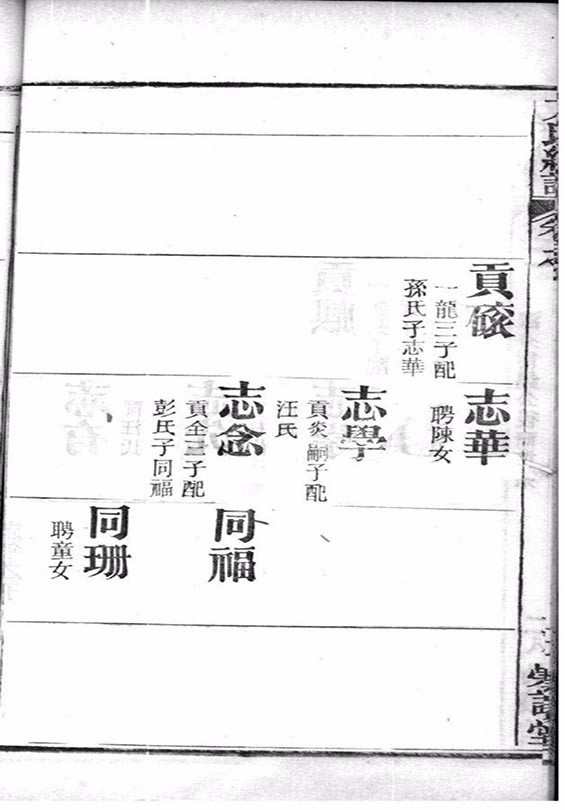 貢
一龍三子配
孫氏子志華
志華
聘陳女
志學
貢炎嗣子配
汪氏
志念
貢全三子配
彭氏子同福
同福
同珊
聘童女